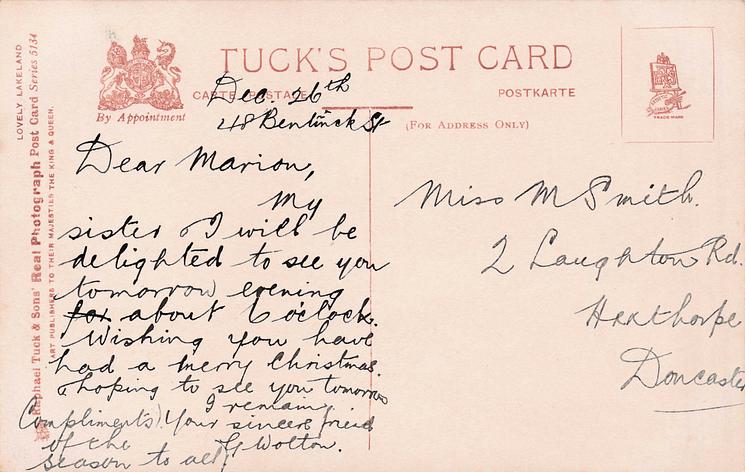 LOVELY LAKELAND
Raphael Tuck & Sons' Real Photograph Post Card Series 5134
ART PUBLISHERS TO THEIR MAJESTIES THE KING & QUEEN.
TUCK'S POST CARD
CARTE POSTALE
POSTKARTE
By Appointment
(FOR ADDRESS ONLY)
TRADE MARK
Dec. 26th
48 Bentinck St
Dear Marion,
My
sister & I will be
delighted to see you
tomorrow evening
for about 6 o'clock.
Wishing you have
had a merry Christmas.
& hoping to see you tomorrow
I remain,
Your sincere friend
G Wolton.
Compliments
of the
season to all
Miss M Smith.
2 Laughton Rd.
Hexthorpe
Doncaster